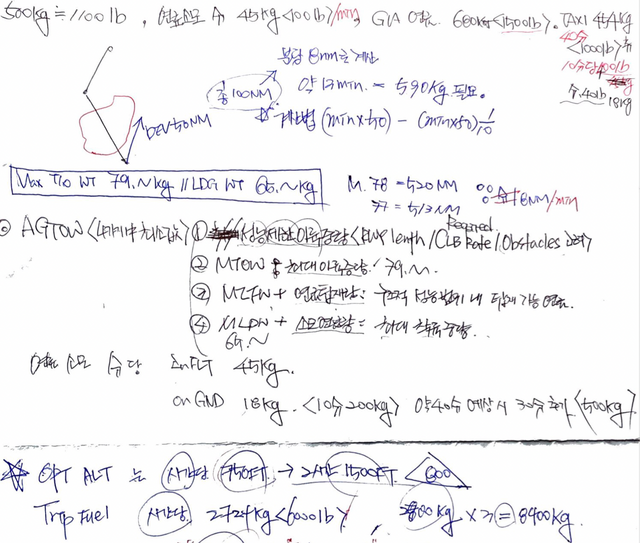 500kg ≒ 1100 lb , 연료소모 A 45kg <100 lb>/min , G/A 연료 680kg <1500 lb>. TAXI 454kg
40분 <1000 lb>
10분당 400 lb
분. 40lb 18kg
분당 8nm로 계산
총 100NM 약 13min. = 590kg 필요.
DEV 50NM
계산법 (min×50) - (min×50) 1/10
Max T/O WT 79.~kg // LDG WT 65.~kg
M.78 = 520 NM 8NM/min
77 = 513 NM
② AGTOW <4가지中 최소값> ① 성능제한이륙중량 <RWY length / Required CLB Rate / Obstacles 고려>
② MTOW : 최대이륙중량. 79.~.
③ MZFW + 연료탑재량 : 구조적 성능범위 내 탑재 가능 연료
④ MLDW + 소모연료량 = 최대 착륙중량.
65.~
연료 소모 분당 InFLT 45kg.
on GND 18kg. <10분 200kg> 약 40분 예상시 30분 추가 <500kg>
☆ OPT ALT 는 시간당 750FT → 2시간 1500FT.
Trip Fuel 시간당. 2724kg <6000 lb> , 2800kg × 3 = 8400kg.